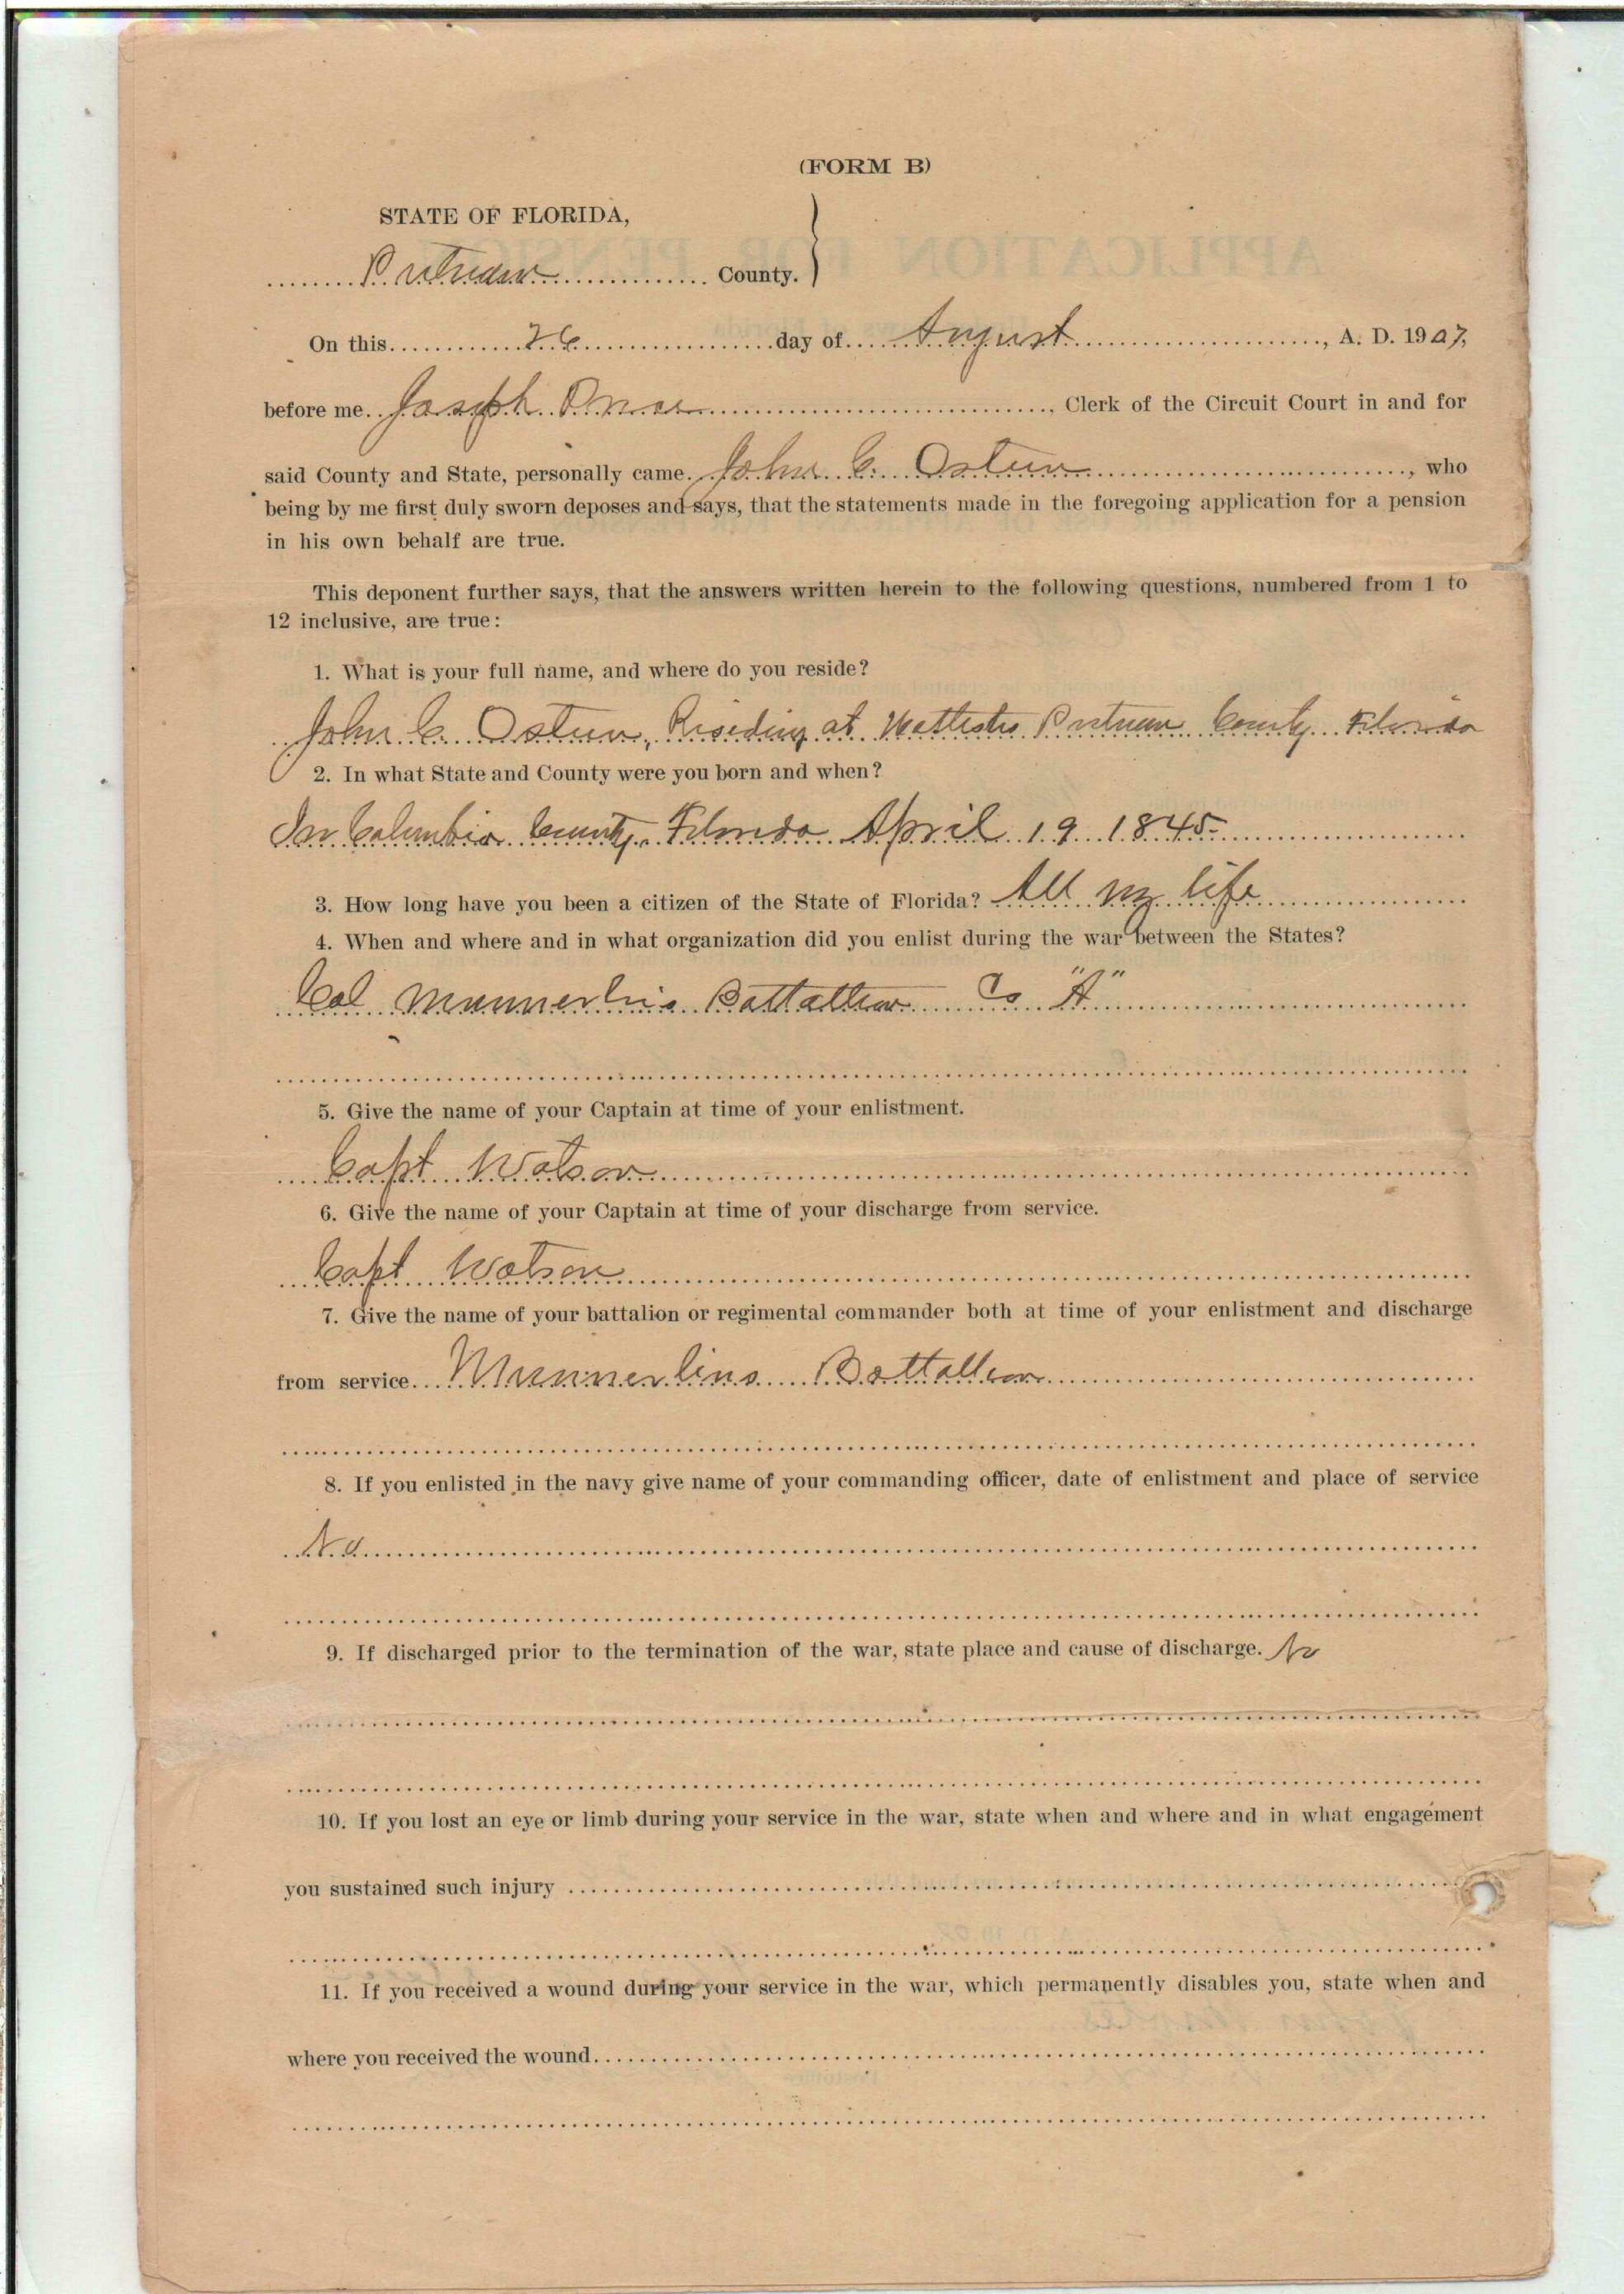 (FORM B)
STATE OF FLORIDA,
Putnam County.
On this 26 day of August, A. D. 1907,
before me Joseph Clerk of the Circuit Court in and for
said County and State, personally came John C. Osteen, who
being by me first duly sworn deposes and says, that the statements made in the foregoing application for a pension
in his own behalf are true.
This deponent further says, that the answers written herein to the following questions, numbered from 1 to
12 inclusive, are true:
1. What is your full name, and where do you reside?
John C. Osteen, Residing at Putnam County Florida
2. In what State and County were you born and when?
In Columbia County, Florida April 19 1845
3. How long have you been a citizen of the State of Florida? All my life
4. When and where and in what organization did you enlist during the war between the States?
Col Munnerlins Battallion Co "A"
5. Give the name of your Captain at time of your enlistment.
Capt Watson
6. Give the name of your Captain at time of your discharge from service.
Capt Watson
7. Give the name of your battalion or regimental commander both at time of your enlistment and discharge
from service. Munnerlins Battallion
8. If you enlisted in the navy give name of your commanding officer, date of enlistment and place of service
No
9. If discharged prior to the termination of the war, state place and cause of discharge. No
10. If you lost an eye or limb during your service in the war, state when and where and in what engagement
you sustained such injury
11. If you received a wound during your service in the war, which permanently disables you, state when and
where you received the wound